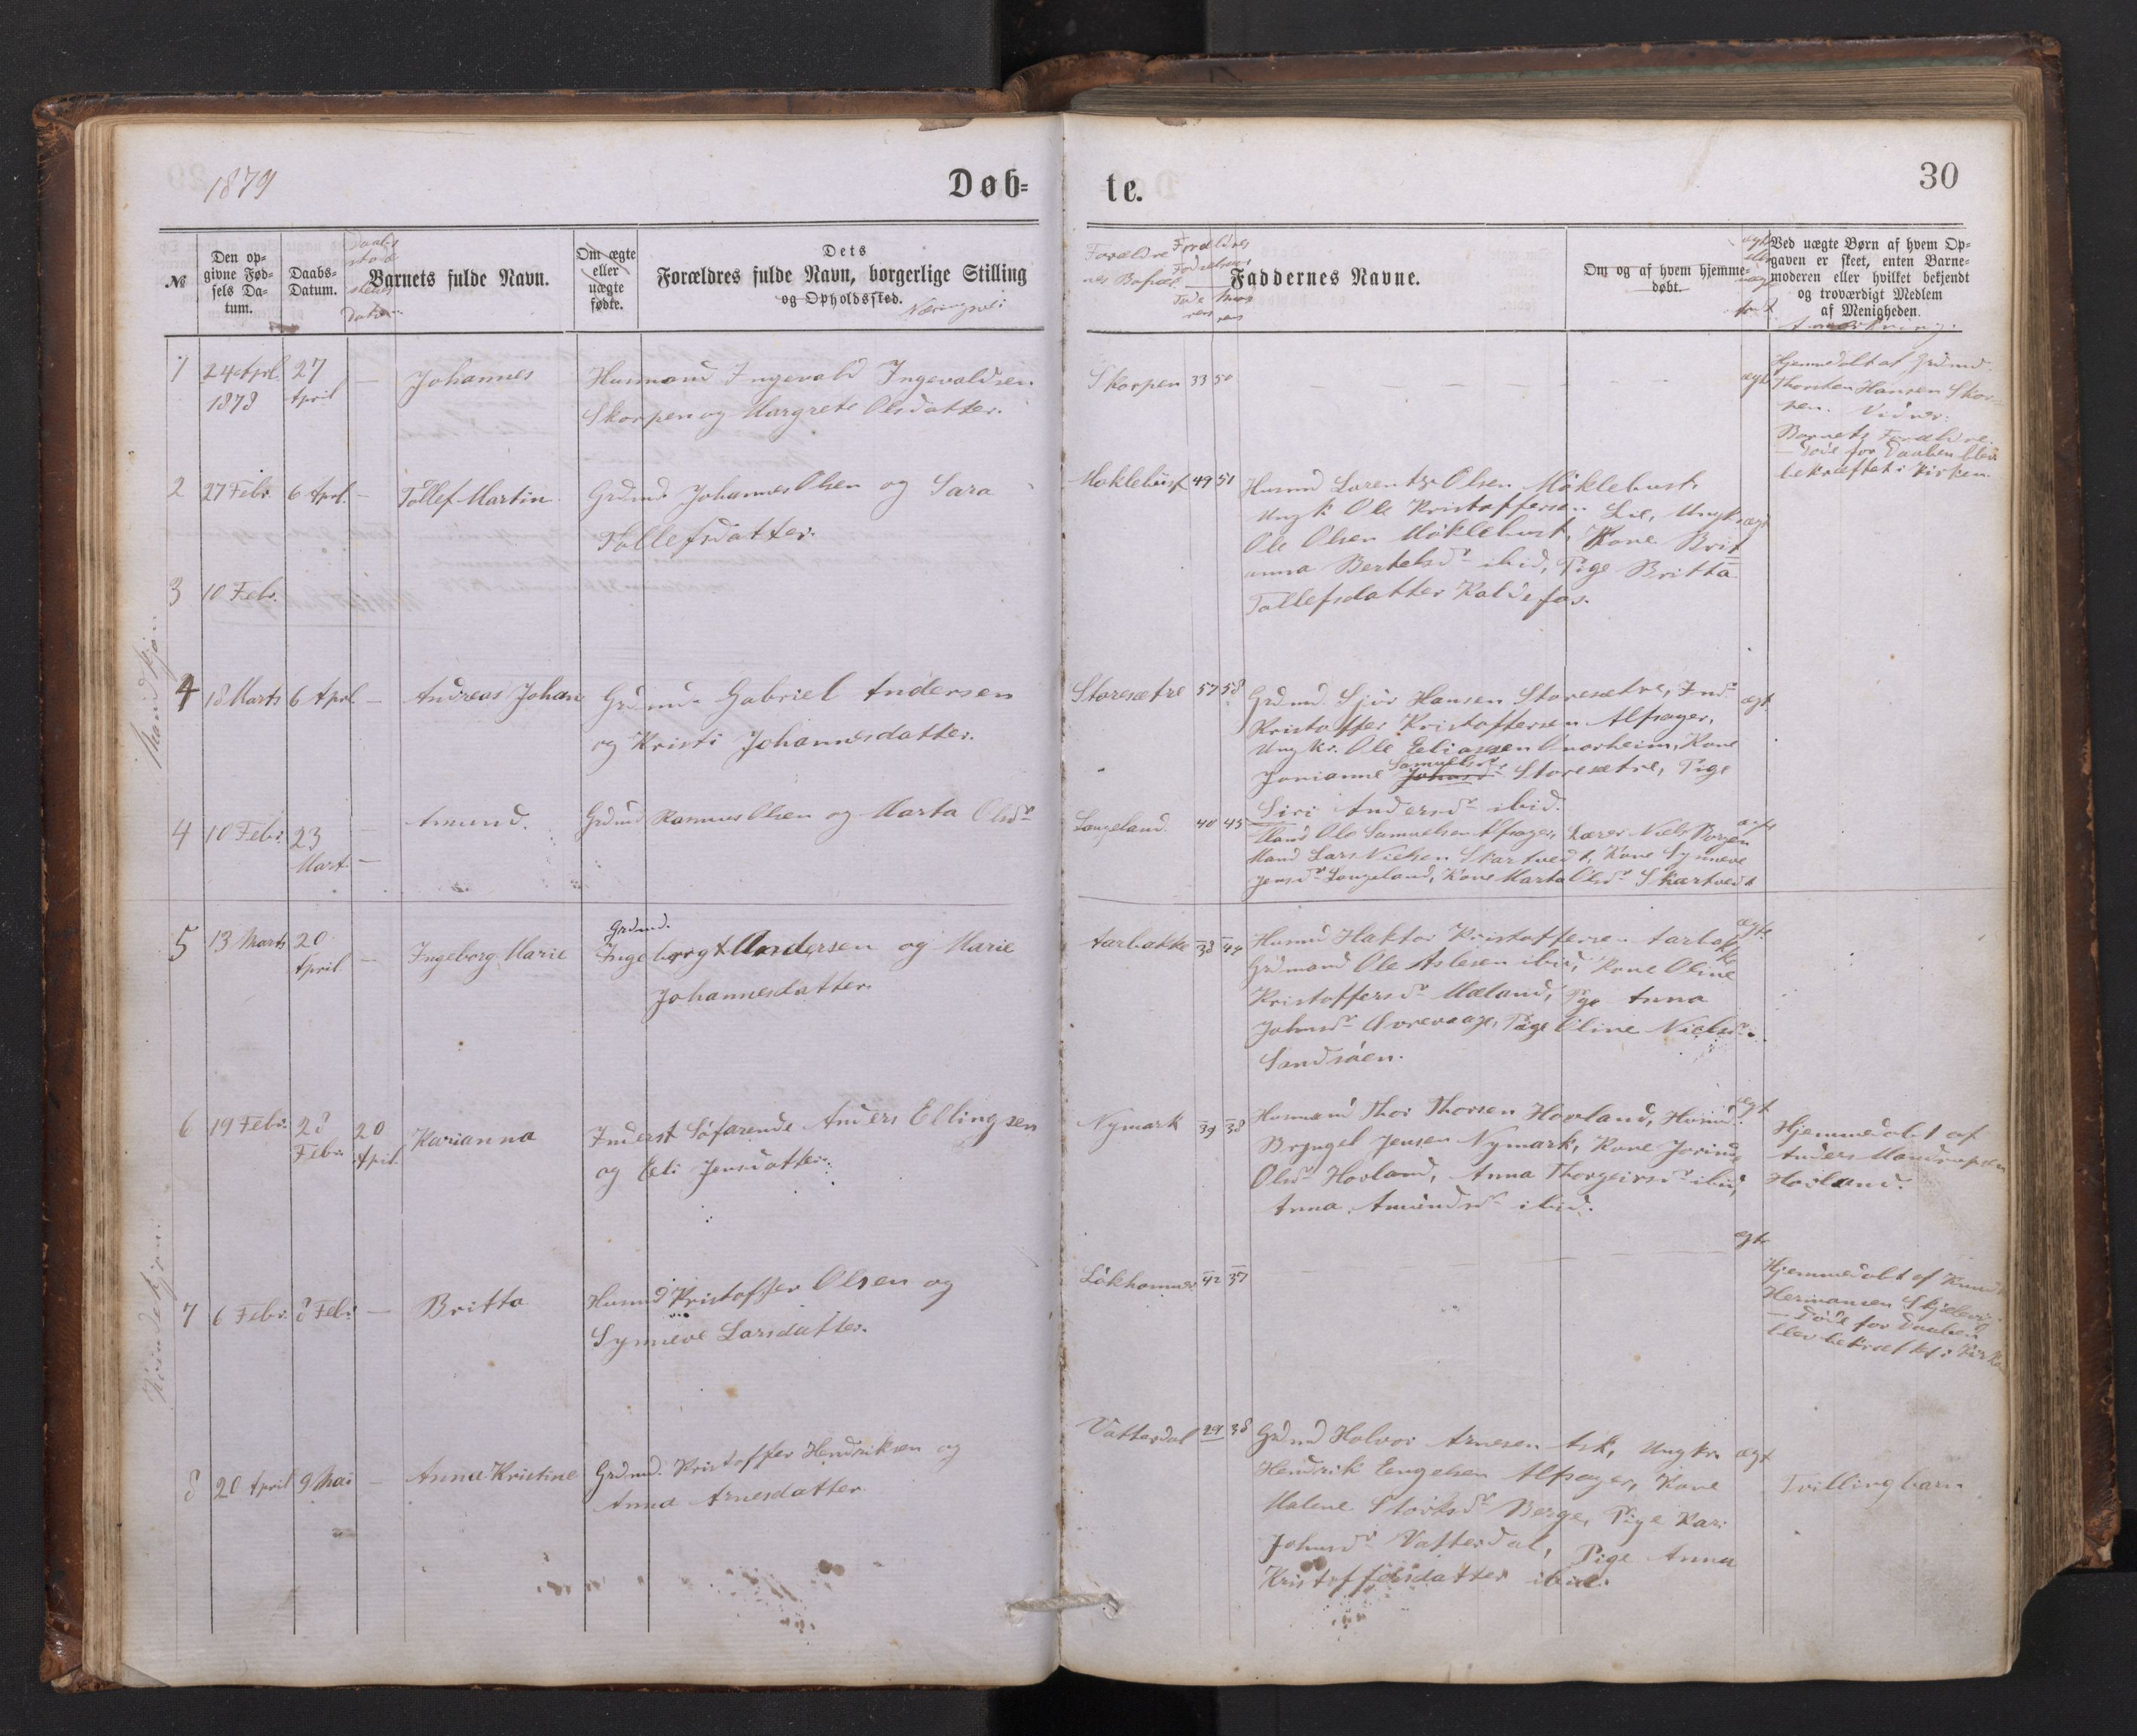 1879
Døb=
te.
30
№
Den op=
givne Fød=
sels Da=
tum.
Daabs=
Datum.
Barnets fulde Navn.
Om ægte
eller
uægte
fødte.
Dets
Forældres fulde Navn, borgerlige Stilling
og Opholdssted.
Næringsvei
Forældre
nes Bopæl
Forældres
Fødselsaar
Fade
rens
Mod
rens
Faddernes Navne.
Om og af hvem hjemme=
døbt.
Ved uægte Børn af hvem Op=
gaven er skeet, enten Barne=
moderen eller hvilket bekjendt
og troværdigt Medlem
af Menigheden.
Anmærkning.
Mandkjøn
1 24 April 27 — Johannes Husmand Ingevald Ingevaldsen
1878 April Skorpen og Margrete Olsdatter.
Skorpen 33 50 ægte
Hjemmedøbt af Grdmd.
Thorsten Hansen Skor-
pen. Vidner.
Barnets Forældre.
— Døde før Daaben blev
bekræftet i Kirken.
2 27 Febr. 6 April — Tollef Martin Grdmd. Johannes Olsen og Sara
Tollefsdatter.
Møklebust 49 51 Husmd Lorents Olsen Møklebust,
Ungk. Ole Kristoffersen Lie, Ungk. ægt
Ole Olsen Møklebust, Kone Brit
anna Bertelsdr ibid, Pige Britta
Tollefsdatter Kaldefos.
3 10 Febr.
4 18 Marts 6 April — Andreas Johan Grdmd. Gabriel Andersen
og Kristi Johannesdatter.
Storesætre 57 58 Grdmd Sjur Hansen Storesætre, Indr ægt.
Kristoffer Kristoffersen Alfsager,
Ungkr. Ole Eeliassen Onarheim, Kone
Jorianne Johnsdr Samuelsdr Storesætre, Pige
Siri Andersdr ibid.
4 10 Febr. 23 — Amund. Grdmd Rasmus Olsen og Marta Olsdr
Mart. —
Langeland. 40 45 Mand Ole Samuelsen Alfsager, Lærer Niels Borgen ægte
Mand Lars Nielsen Skartvedt, Kone Synneve
Jensdr Langeland, Kone Marta Olsdr Skartvedt
Kvindekjøn
5 13 Marts 20 — Ingeborg Marie Grdmd. Ingebrigt Andersen og Marie
April Johannesdatter.
Aarbakke 38 44 Husmd Haktor Kristoffersen Aarbakke ægte
Grdmand Ole Aslesen ibid, Kone Oline
Kristoffersdr Mæland, Pge Anna
Johnsdr Økrevaage, Pige Oline Nielsdr
Sandsøen.
6 19 Febr. 28 20 Karianna Inderst Søfarende Anders Ellingsen
Febr. April og Eeli Jensdatter.
Nymark 39 38 Husmand Thor Thorsen Hovland, Husmd. ægt
Bryngel Jensen Nymark, Kone Jorinde
Olsdr Hovland, Anna Thorgeirsdr ibid,
Anna Amundsdr ibid.
Hjemmedøbt af
Anders Mandrupsen
Hovland.
7 6 Febr. 8 Febr. — Britta Husmd Kristoffer Olsen og
Synneve Larsdatter.
Løkhammer 42 37 ægte
Hjemmedøbt af Knud
Hermansen Skjelevig
— Døde før Daaben
blev bekræftet i Kirken
8 20 April 9 Mai — Anna Kristine Grdmd. Kristoffer Hendriksen og
Anna Arnesdatter.
Vatterdal 29 38 Grdmd Halvor Arnesen Ask, Ungkr. ægt
Hendrik Engelsen Alfsager, Kone
Malene Størksdr Berge, Pige Kari
Johnsdr Vatterdal, Pige Anna
Kristoffersdatter ibid.
Tvillingbarn